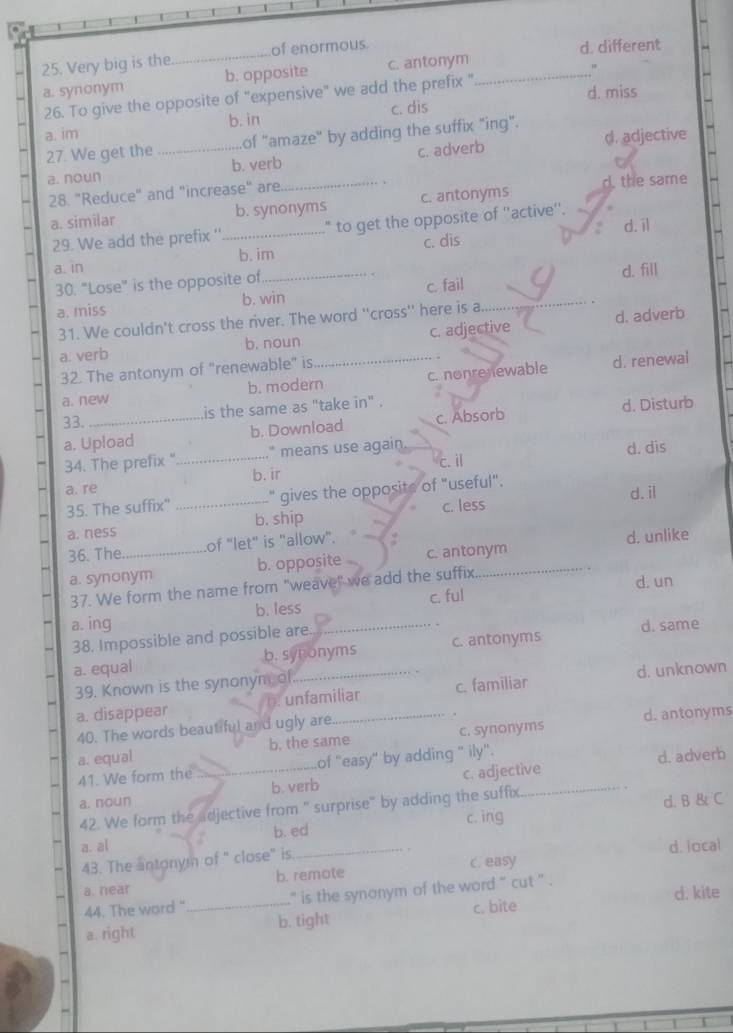 25. Very big is the____________of enormous.
a. synonym b. opposite c. antonym d. different
26. To give the opposite of "expensive" we add the prefix "____________"
a. im b. in c. dis d. miss
27. We get the ____________of "amaze" by adding the suffix "ing".
a. noun b. verb c. adverb d. adjective
28. "Reduce" and "increase" are____________.
a. similar b. synonyms c. antonyms d. the same
29. We add the prefix "____________" to get the opposite of "active".
a. in b. im c. dis d. il
30. "Lose" is the opposite of____________.
a. miss b. win c. fail d. fill
31. We couldn't cross the river. The word "cross" here is a____________.
a. verb b. noun c. adjective d. adverb
32. The antonym of "renewable" is____________.
a. new b. modern c. nonrenewable d. renewal
33. ____________is the same as "take in" .
a. Upload b. Download c. Absorb d. Disturb
34. The prefix "____________" means use again.
a. re b. ir c. il d. dis
35. The suffix" ____________" gives the opposite of "useful".
a. ness b. ship c. less d. il
36. The____________of "let" is "allow".
a. synonym b. opposite c. antonym d. unlike
37. We form the name from "weave" we add the suffix____________.
a. ing b. less c. ful d. un
38. Impossible and possible are____________.
a. equal b. synonyms c. antonyms d. same
39. Known is the synonym of____________.
a. disappear b. unfamiliar c. familiar d. unknown
40. The words beautiful and ugly are____________.
a. equal b. the same c. synonyms d. antonyms
41. We form the ____________of "easy" by adding " ily".
a. noun b. verb c. adjective d. adverb
42. We form the adjective from " surprise" by adding the suffix____________.
a. al b. ed c. ing d. B & C
43. The antonym of " close" is____________.
a. near b. remote c. easy d. local
44. The word "____________" is the synonym of the word " cut " .
a. right b. tight c. bite d. kite